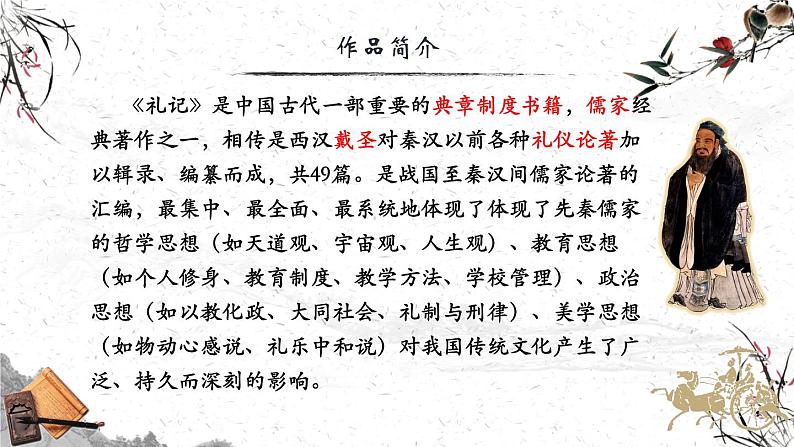 作品简介
《礼记》是中国古代一部重要的典章制度书籍，儒家经
典著作之一，相传是西汉戴圣对秦汉以前各种礼仪论著加
以辑录、编纂而成，共49篇。是战国至秦汉间儒家论著的
汇编，最集中、最全面、最系统地体现了体现了先秦儒家
的哲学思想（如天道观、宇宙观、人生观）、教育思想
（如个人修身、教育制度、教学方法、学校管理）、政治
思想（如以教化政、大同社会、礼制与刑律）、美学思想
（如物动心感说、礼乐中和说）对我国传统文化产生了广
泛、持久而深刻的影响。